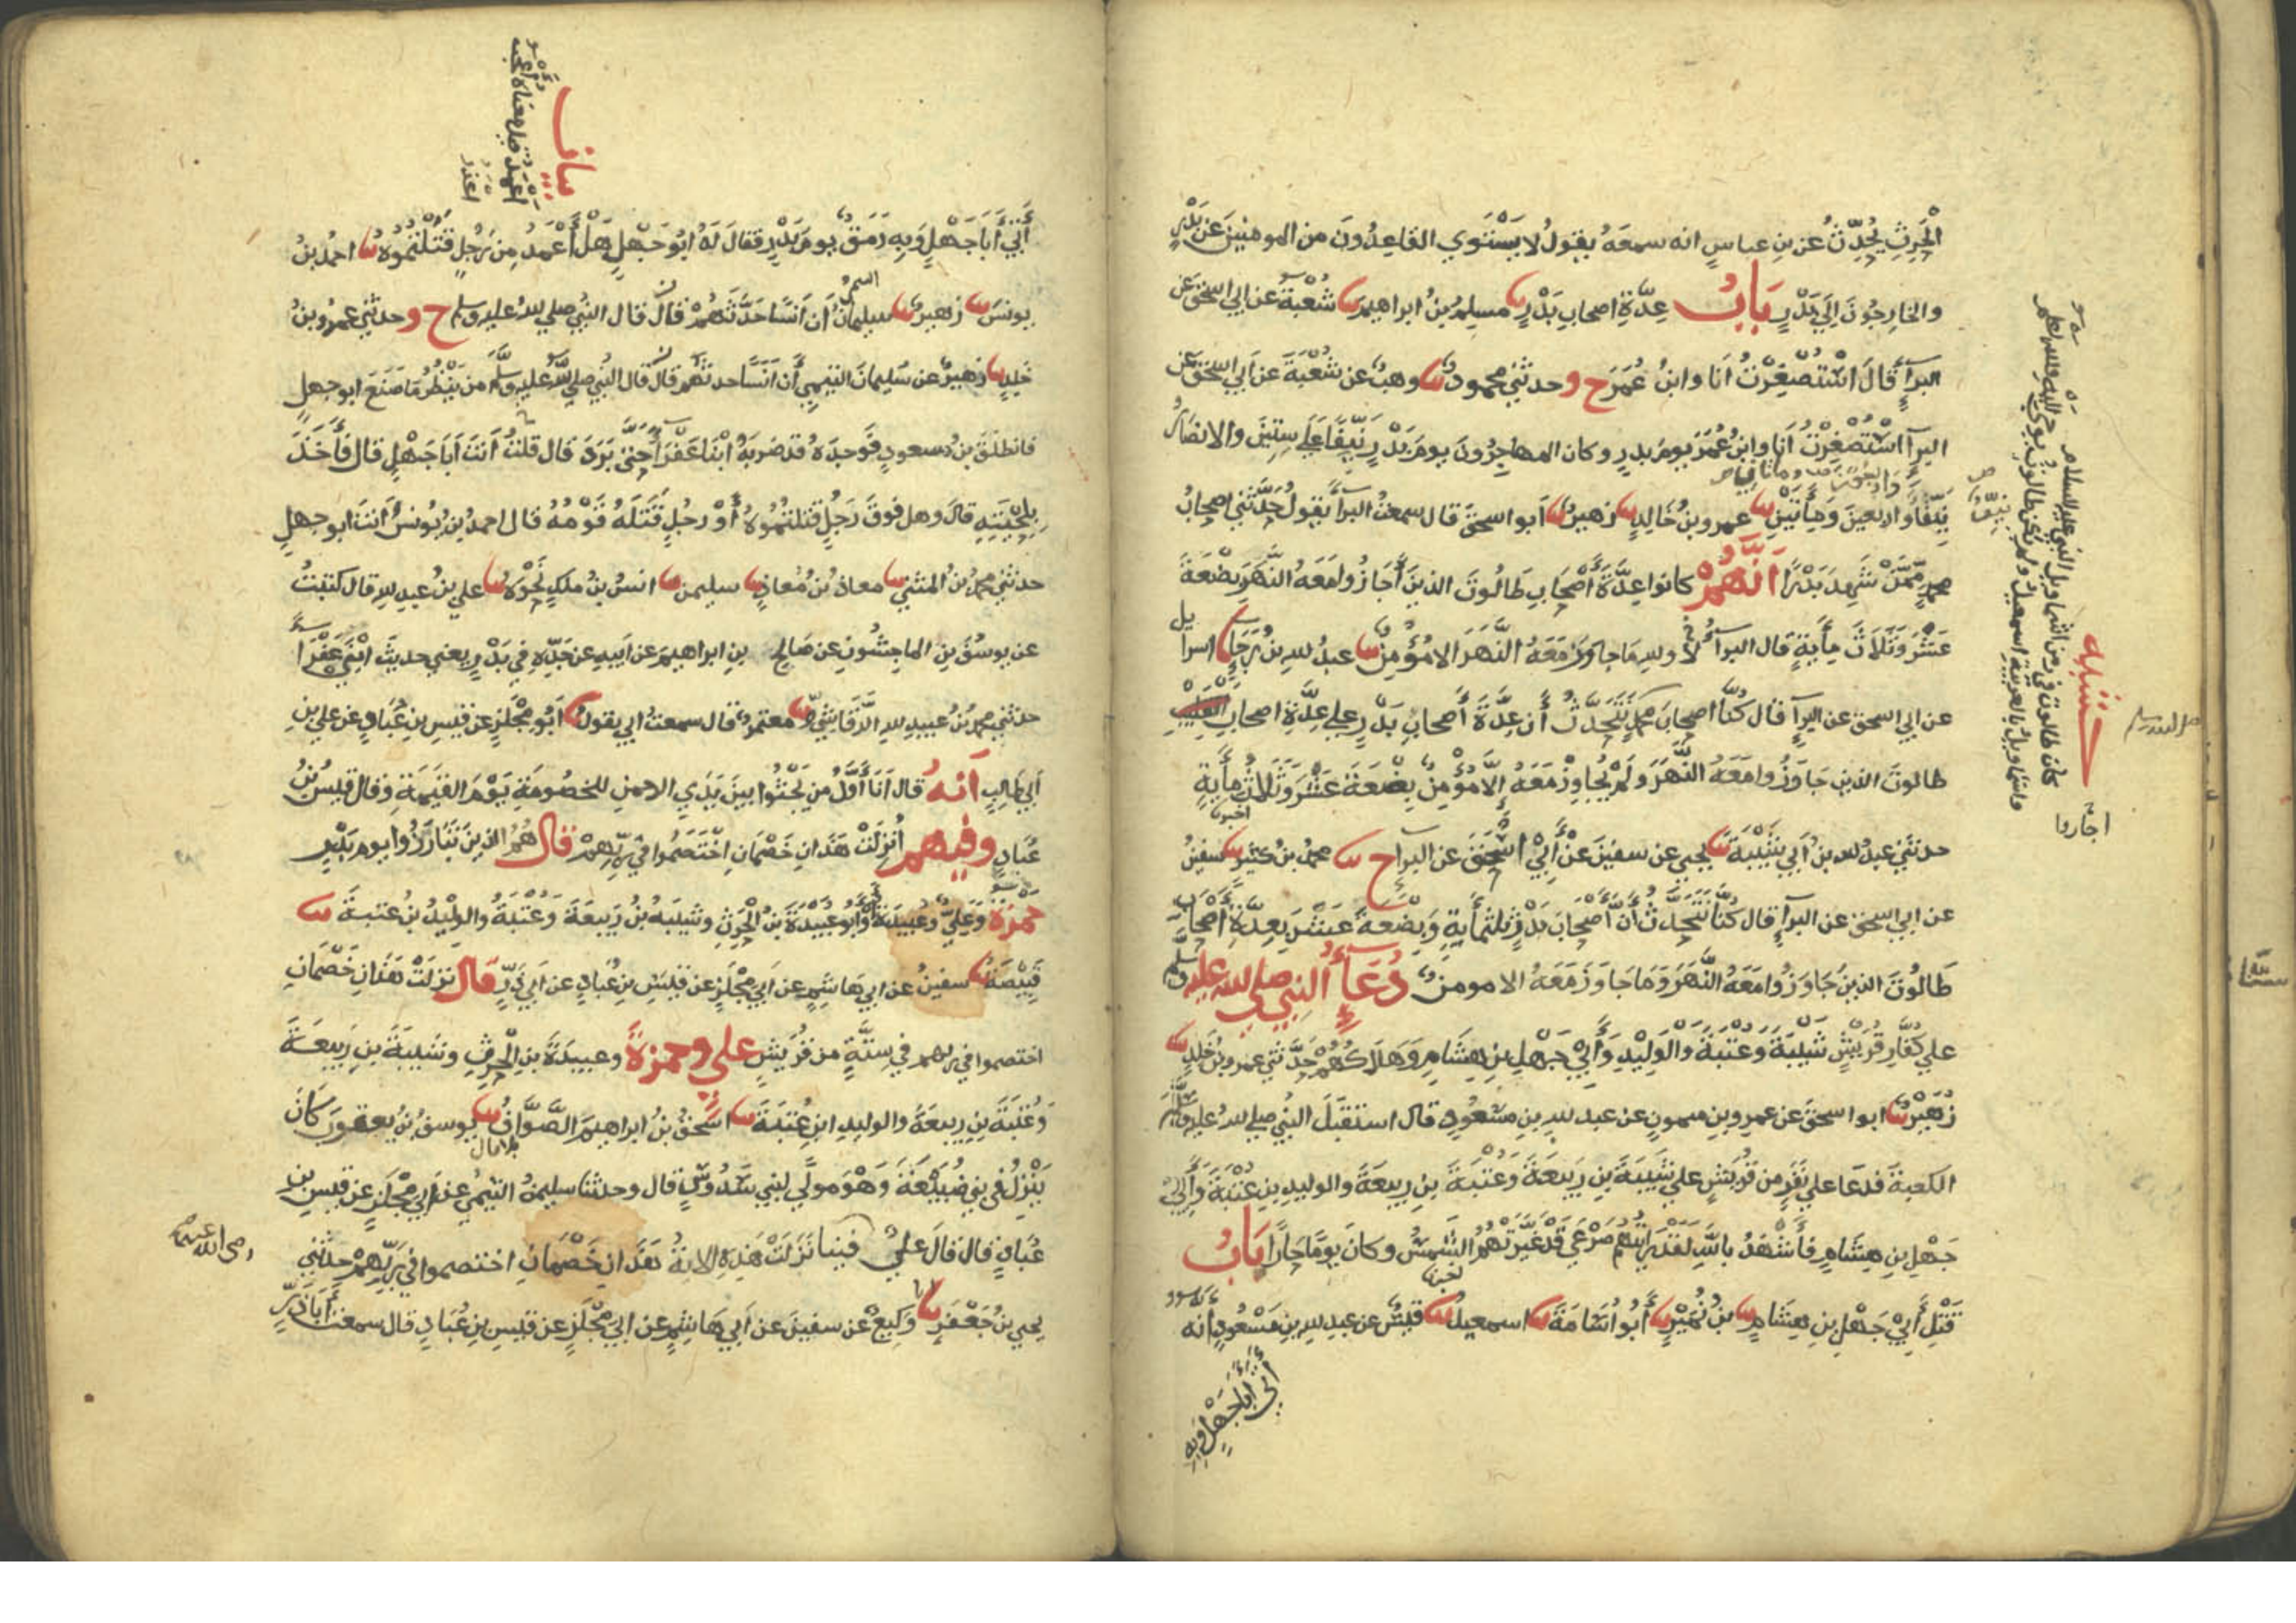 الحرث يحدث عن بن عباس انه سمعه يقول لا يستوي القاعدون من المومنين عن بدر
والخارجون الي بدر باب عدة اصحاب بدر نا مسلم بن ابراهيم نا شعبة عن ابي اسحق عن
البرآء قال استصغرت انا وابن عمر ح و حدثني محمود نا وهب عن شعبة عن ابي اسحق عن
البرآء استصغرت أنا وابن عمر يوم بدر وكان المهاجرون يوم بدر نيفا علي ستين والانصار
نيفا واربعين ومأيتين نا عمرو بن خالد نا زهير نا أبو اسحق قال سمعت البرآء يقول حدثني اصحاب
محمد ممن شهد بدرا انهم كانوا عدة أصحاب طالوت الذين أجازوا معه النهر بضعة
عشر وثلاث مأية قال البرآء لا والله ما جاوز معه النهر الا مؤمن نا عبد الله بن رجا نا اسرايل
عن ابي اسحق عن البرآء قال كنا اصحاب محمد نتحدث أن عدة أصحاب بدر علي عدة اصحاب
طالوت الذين جاوزوا معه النهر ولم يجاوز معه الا مؤمن بضعة عشر وثلاث مأية
حدثني عبد الله بن أبي شيبة نا يحيى عن سفين عن أبي اسحق عن البرآء ح نا محمد بن كثير نا سفين
عن ابي اسحق عن البرآء قال كنا نتحدث أن أصحاب بدر ثلثمأية وبضعة عشر بعدة أصحاب
طالوت الذين جاوزوا معه النهر وما جاوز معه الا مومن دعاء النبي صلي الله عليه وسلم
علي كفار قريش شيبة وعتبة والوليد وأبي جهل بن هشام وهلاكهم حدثني عمرو بن خلد نا
زهير نا ابو اسحق عن عمرو بن ميمون عن عبد الله بن مسعود قال استقبل النبي صلي الله عليه وسلم
الكعبة فدعا علي نفر من قريش علي شيبة بن ربيعة وعتبة بن ربيعة والوليد بن عتبة وأبي
جهل بن هشام فأشهد بالله لقد رايتهم صرعي قد غيرتهم الشمس وكان يوما حارا باب
قتل أبي جهل بن هشام نا بن نمير نا أبو اسامة نا اسمعيل نا قيس عن عبد الله بن مسعود انه
أتي أبا جهل وبه
حشيه
كان طالوت في زمن اشماويل النبي عليه السلام
اجازوا
أتي أبا جهل وبه رمق يوم بدر فقال له ابو جهل هل أعمد من رجل قتلتموه نا احمد بن
يونس نا زهير نا سليمان أن أنسا حدثهم قال قال النبي صلي الله عليه وسلم ح و حدثني عمرو بن
خلد نا زهير عن سليمان التيمي أن أنسا حدثهم قال قال النبي صلي الله عليه وسلم من ينظر ما صنع ابو جهل
فانطلق بن مسعود فوجده قد ضربه ابنا عفرآء حتى برد قال قلت أنت أبا جهل قال فأخذ
بلحيته قال وهل فوق رجل قتلتموه أو رجل قتله قومه قال احمد بن يونس أنت ابو جهل
حدثني محمد بن المثني نا معاذ بن معاذ نا سليمن نا انس بن ملك نحوه نا علي بن عبد الله قال كتبت
عن يوسف بن الماجشون عن صالح بن ابراهيم عن أبيه عن جده في بدر يعني حديث ابني عفرآء
حدثني محمد بن عبيد الله الرقاشي نا معتمر قال سمعت ابي يقول نا أبو مجلز عن قيس بن عباد عن علي بن
أبي طالب انه قال أنا أول من يجثوا بين يدي الرحمن للخصومة يوم القيمة وقال قيس بن
عباد وفيهم أنزلت هذان خصمان اختصموا في ربهم قال هم الذين تبارزوا يوم بدر
حمزة وعلي وعبيدة أو أبو عبيدة بن الحرث وشيبة بن ربيعة وعتبة والوليد بن عتبة نا
قبيصة نا سفين عن ابي هاشم عن ابي مجلز عن قيس بن عباد عن أبي ذر قال نزلت هذان خصمان
اختصموا في ربهم في ستة من قريش علي وحمزة وعبيدة بن الحرث وشيبة بن ربيعة
وعتبة بن ربيعة والوليد ابن عتبة نا اسحق بن ابراهيم الصواف نا يوسف بن يعقوب كان
ينزل في بني ضبيعة وهو مولى لبني سدوس قال وحدثنا سليمن التيمي عن ابي مجلز عن قيس بن
عباد قال قال علي فينا نزلت هذه الاية هذان خصمان اختصموا في ربهم حدثني
يحيي بن جعفر نا وكيع عن سفين عن أبي هاشم عن ابي مجلز عن قيس بن عباد قال سمعت أبا ذر